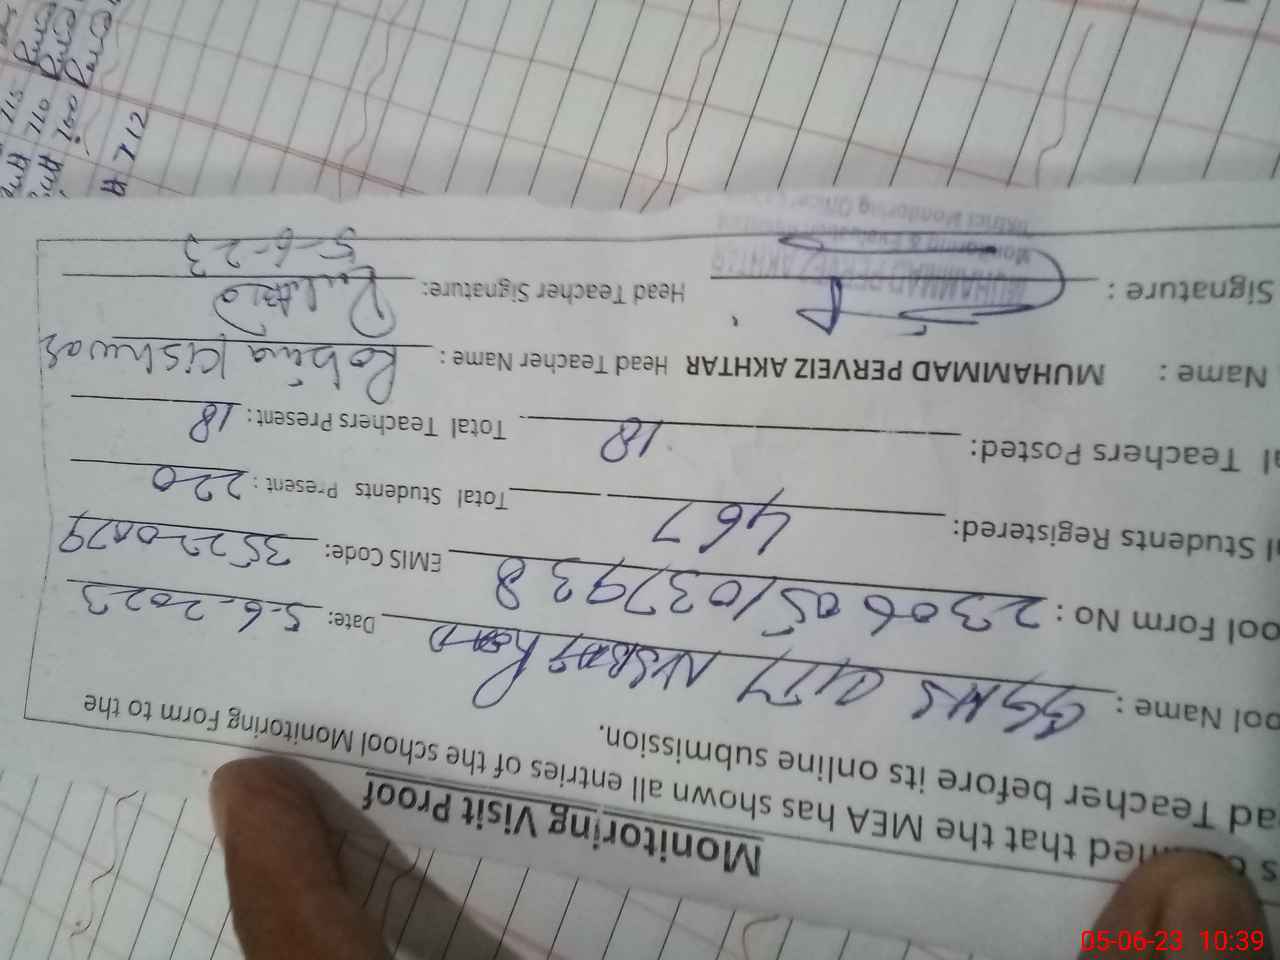 Monitoring Visit Proof
that the MEA has shown all entries of the school Monitoring Form to the
ad Teacher before its online submission.
ool Name : GGHS Road Date: 5-6-2023
ool Form No : 2306051037938 EMIS Code: 35220079
l Students Registered: 467 Total Students Present : 220
l Teachers Posted: 18 Total Teachers Present : 18
Name : MUHAMMAD PERVEIZ AKHTAR Head Teacher Name : Robina Kishwar
Signature : Head Teacher Signature:
5-6-23
MUHAMMAD PERVEIZ AKHTAR
Monitoring & Evaluation
District Monitoring Officer
715
710
700
712
05-06-23 10:39